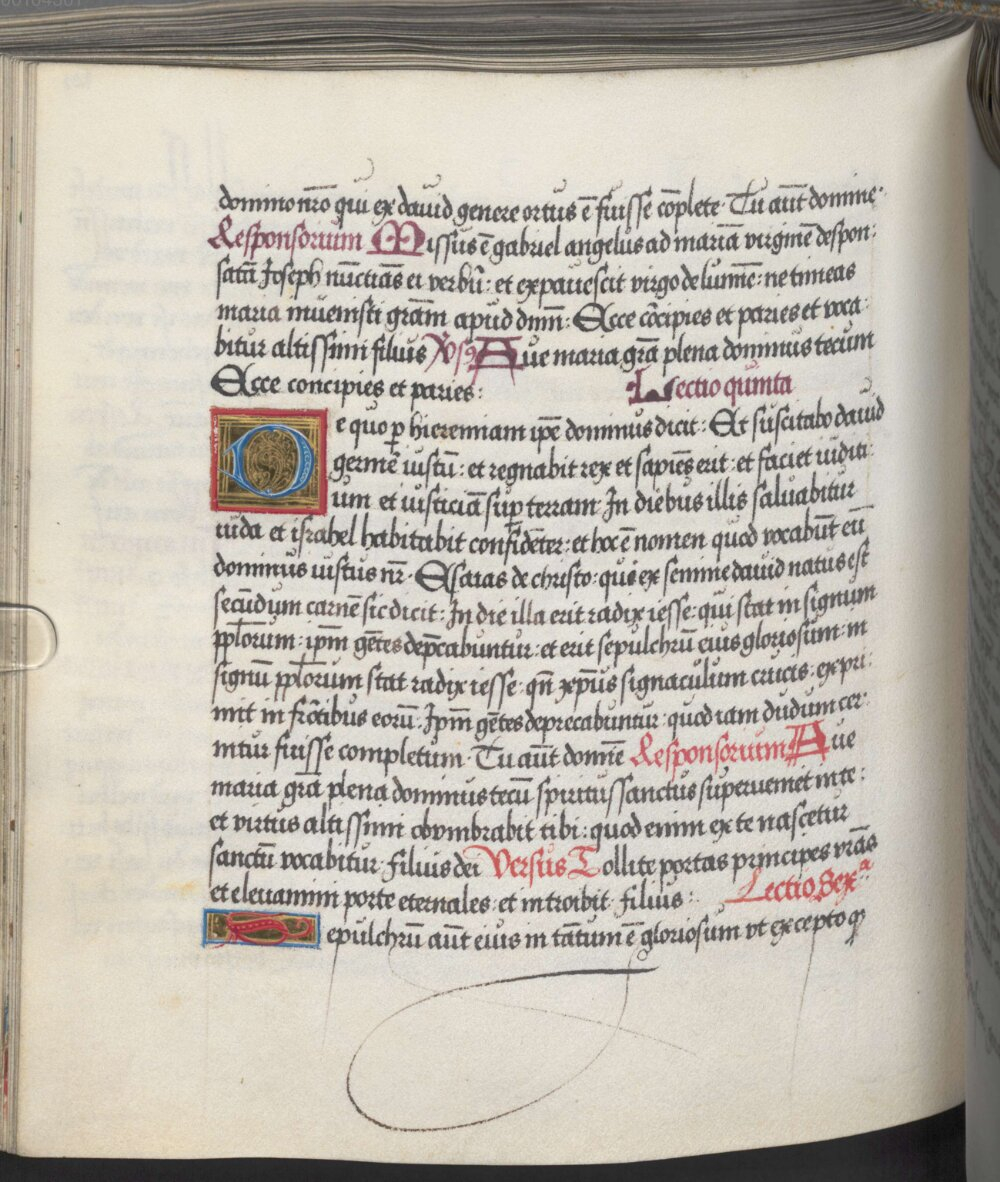 domino nr̄o qui ex dauid genere ortus ē fuisse cōplete · Tu aūt domine ·
Responsorium Missus ē gabriel angelus ad mariā virginē despon:
satā Joseph nūctiās ei verbū : et expauescit virgo de lumīe : ne timeas
maria inuenisti grām apud dnm̄ : Ecce cōcipies et paries et voca
bitur altissimi filius Vs9 Aue maria grā plena dominus tecum
Ecce concipies et paries : Lectio quinta
De quo ꝑ hieremiam ipē dominus dicit : Et suscitabo dauid
germē iustū : et regnabit rex et sapiēs erit : et faciet iuditi
um et iusticiā suꝑ terram In diebus illis saluabitur
iuda et israhel habitabit confidēter : et hoc ē nomen quod vocabūt eū
dominus iustus nr̄ · Esaias de christo : qui ex semine dauid natus est
secūdum carnē sic dicit : In die illa erit radix iesse : qui stat in signum
pplorum : ipm̄ gētes dep̄cabuntur : et erit sepulchrū eius gloriosum : in
signū pplorum stat radix iesse : qn̄ xp̄us signaculum crucis : expri:
mit in frōtibus eorū · Ipm̄ gētes deprecabuntur : quod iam dudum cer:
nitur fuisse completum · Tu aūt domīe Responsorium Aue
maria grā plena dominus tecū spiritus sanctus superueniet in te :
et virtus altissimi obumbrabit tibi : quod enim ex te nascetur
sanctū vocabitur filius dei Versus Tollite portas principes vrās
et eleuamini porte eternales : et introibit filius : Lectio Sexᵃ
Sepulchrū aūt eius in tātum ē gloriosum vt excepto ꝙ